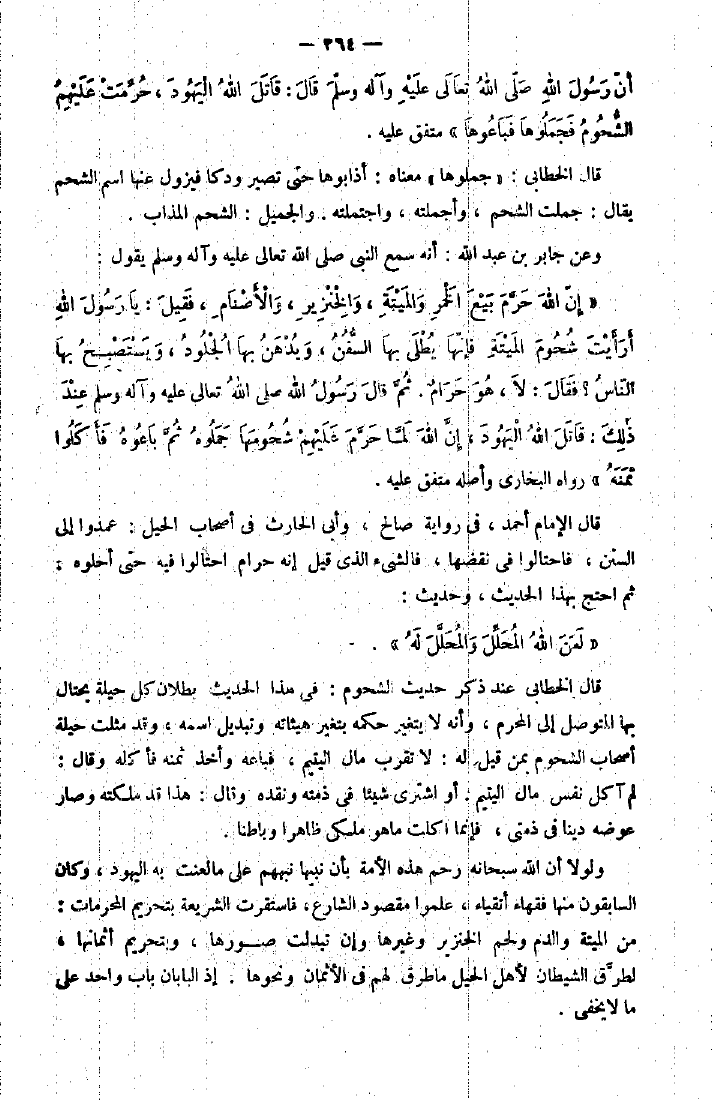 — ٣٦٤ —
أنّ رَسُولَ اللهِ صَلَّى اللهُ تعَالَى عليْهِ وآله وسلّمَ قَالَ: قَاتَلَ اللهُ الْيَهُودَ ، حُرِّمَتْ عَلَيْهِمُ
الشُّحُومُ فَجَمَلُوهَا فَبَاعُوهَا » متفق عليه .
قال الخطابى : « جملوها » معناه : أذابوها حتى تصير ودكا فيزول عنها اسم الشحم
يقال : جملت الشحم ، وأجملته ، واجتملته . والجميل : الشحم المذاب .
وعن جابر بن عبد الله : أنه سمع النبى صلى الله تعالى عليه وآله وسلم يقول :
« إنّ اللهَ حَرَّمَ بَيْعَ الْخَمْرِ وَالْمَيْتَةِ ، وَالْخِنْزِيرِ ، وَالْأَصْنَامِ ، فَقِيلَ : يَا رَسُولَ اللهِ
أَرَأَيْتَ شُحُومَ الْمَيْتَةِ فَإِنّهَا يُطْلَى بِهَا السُّفُنُ ، وَيُدْهَنُ بِهَا الْجُلُودُ ، وَيَسْتَصْبِحُ بِهَا
النّاسُ ؟ فَقَالَ : لاَ ، هُوَ حَرَامٌ . ثُمَّ قالَ رَسُولُ الله صلى اللهُ تعالى عليه وآله وسلم عِنْدَ
ذٰلِكَ : قَاتَلَ اللهُ الْيَهُودَ ، إنَّ اللهَ لَمَّا حَرَّمَ عَلَيْهِمْ شُحُومَهَا جَمَلُوهُ ثُمَّ بَاعُوهُ فَأَكَلُوا
ثَمَنَهُ » رواه البخارى وأصله متفق عليه .
قال الإمام أحمد ، فى رواية صالح ، وأبى الحارث فى أصحاب الحيل : عمدوا إلى
السنن ، فاحتالوا فى نقضها ، فالشىء الذى قيل إنه حرام احتالوا فيه حتى أحلوه ؛
ثم احتج بهذا الحديث ، وحديث :
« لَعَنَ اللهُ الْمُحَلِّلَ وَالْمُحَلَّلَ لَهُ » .
قال الخطابى عند ذكر حديث الشحوم : فى هذا الحديث بطلان كل حيلة يحتال
بها المتوصل إلى المحرم ، وأنه لا يتغير حكمه بتغير هيئاته وتبديل اسمه ، وقد مثلت حيلة
أصحاب الشحوم بمن قيل له : لا تقرب مال اليتيم ، فباعه وأخذ ثمنه فأكله وقال :
لم آكل نفس مال اليتيم . أو اشترى شيئا فى ذمته ونقده وقال : هذا قد ملكته وصار
عوضه دينا فى ذمتى ، فإنما أكلت ماهو ملكى ظاهرا وباطنا .
ولولا أن الله سبحانه رحم هذه الأمة بأن نبيها نبههم على مالعنت به اليهود ، وكان
السابقون منها فقهاء أتقياء ، علموا مقصود الشارع، فاستقرت الشريعة بتحريم المحرمات :
من الميتة والدم ولحم الخنزير وغيرها وإن تبدلت صورها ، وبتحريم أثمانها ،
لطرَّق الشيطان لأهل الحيل ماطرق لهم فى الأثمان ونحوها . إذ البابان باب واحد على
ما لايخفى .